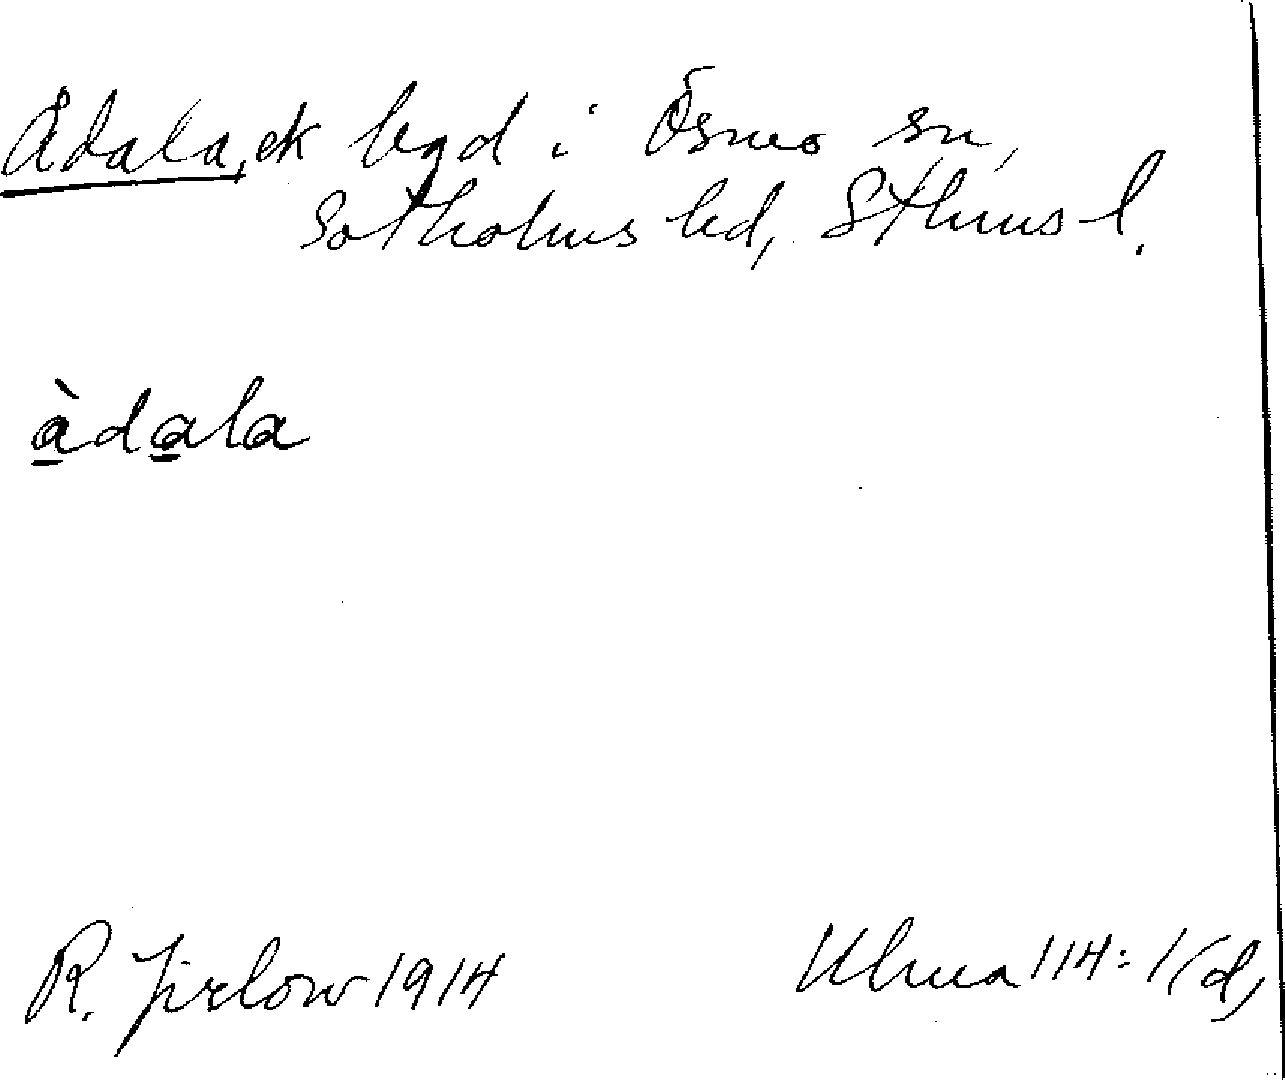 Ådala, ek bgd i Ösmo sn,
Sotholms hd, Sthms l.
àdala
R. Jirlow 1914
Ulma 114:1(d)